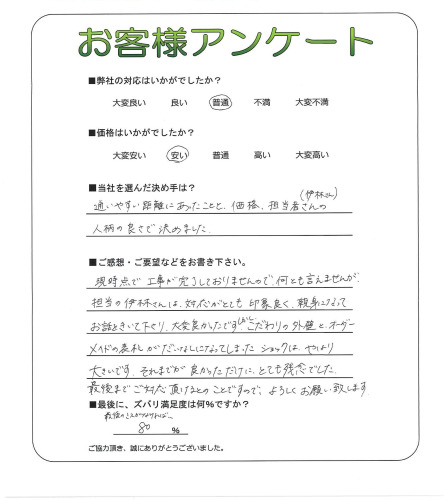 お客様アンケート
■弊社の対応はいかがでしたか?
大変良い 良い 普通 不満 大変不満
■価格はいかがでしたか?
大変安い 安い 普通 高い 大変高い
■当社を選んだ決め手は?
(伊林さん)
通いやすい距離にあったことと、価格、担当者さんの
人柄の良さで決めました。
■ご感想・ご要望などをお書き下さい。
現時点で工事が完了しておりませんので、何とも言えませんが、
担当の伊林さんは、対応がとても印象良く、親身になって
お話をきいて下さり、大変良かったです。しかし、こだわりの外壁と、オーダー
メイドの表札がだいなしになってしまったショックは、やはり
大きいです。それまでが良かっただけに、とても残念でした。
最後までご対応頂けるとのことですので、よろしくお願い致します
■最後に、ズバリ満足度は何%ですか?
最後のミスがなければ、
80 %
ご協力頂き、誠にありがとうございました。